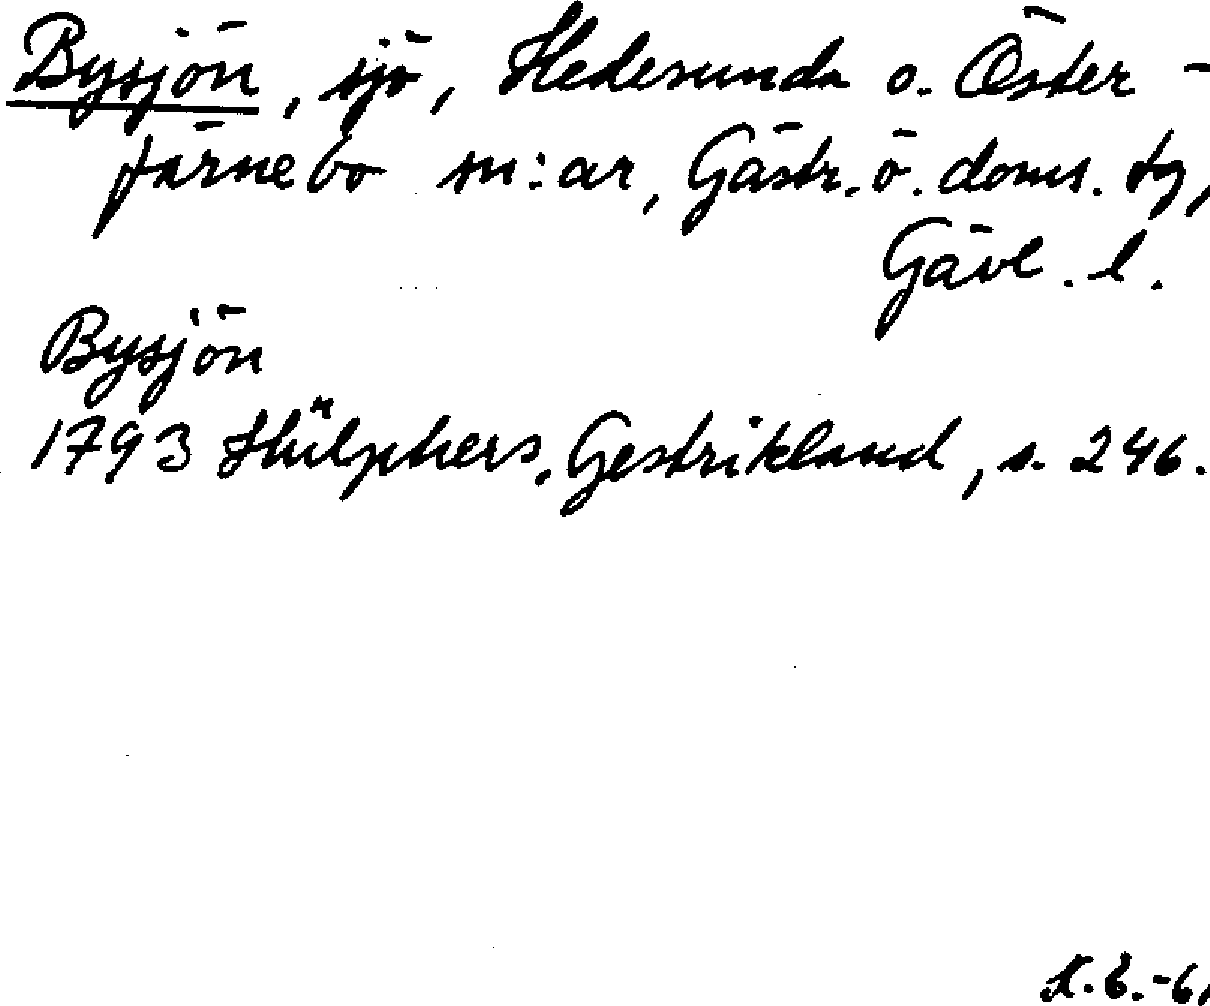 Bysjön, sjö, Hedesunda o. Öster-
färnebo sn:ar, Gästr. ö. doms. tg,
Gävl. l.
Bysjön
1793 Hülphers, Gestrikland, s. 246.